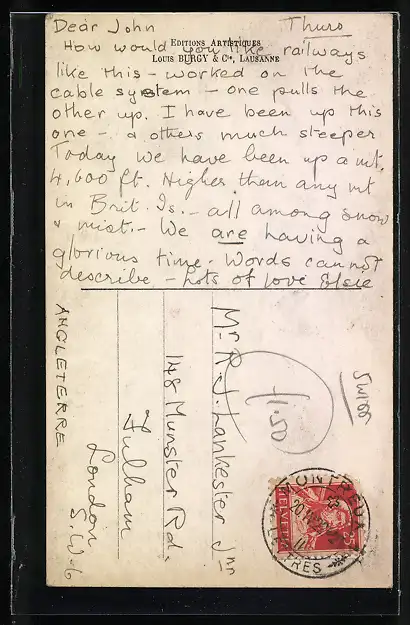 Dear John Thurs
Editions Artistiques
Louis BURGY & Cie, LAUSANNE
How would you like railways
like this - worked on the
cable system - one pulls the
other up. I have been up this
one - & others much steeper
Today we have been up a mt.
4,600 ft. Higher than any mt
in Brit. Is. - all among snow
& mist. - We are having a
glorious time. Words cannot
describe - Lots of love Elsie
Mr. R. J. Lankester Jnr
148 Munster Rd.
Fulham
London
S.W.6
ANGLETERRE
Swiss
1.50
MONTREUX
LETTRES
HELVETIA
25